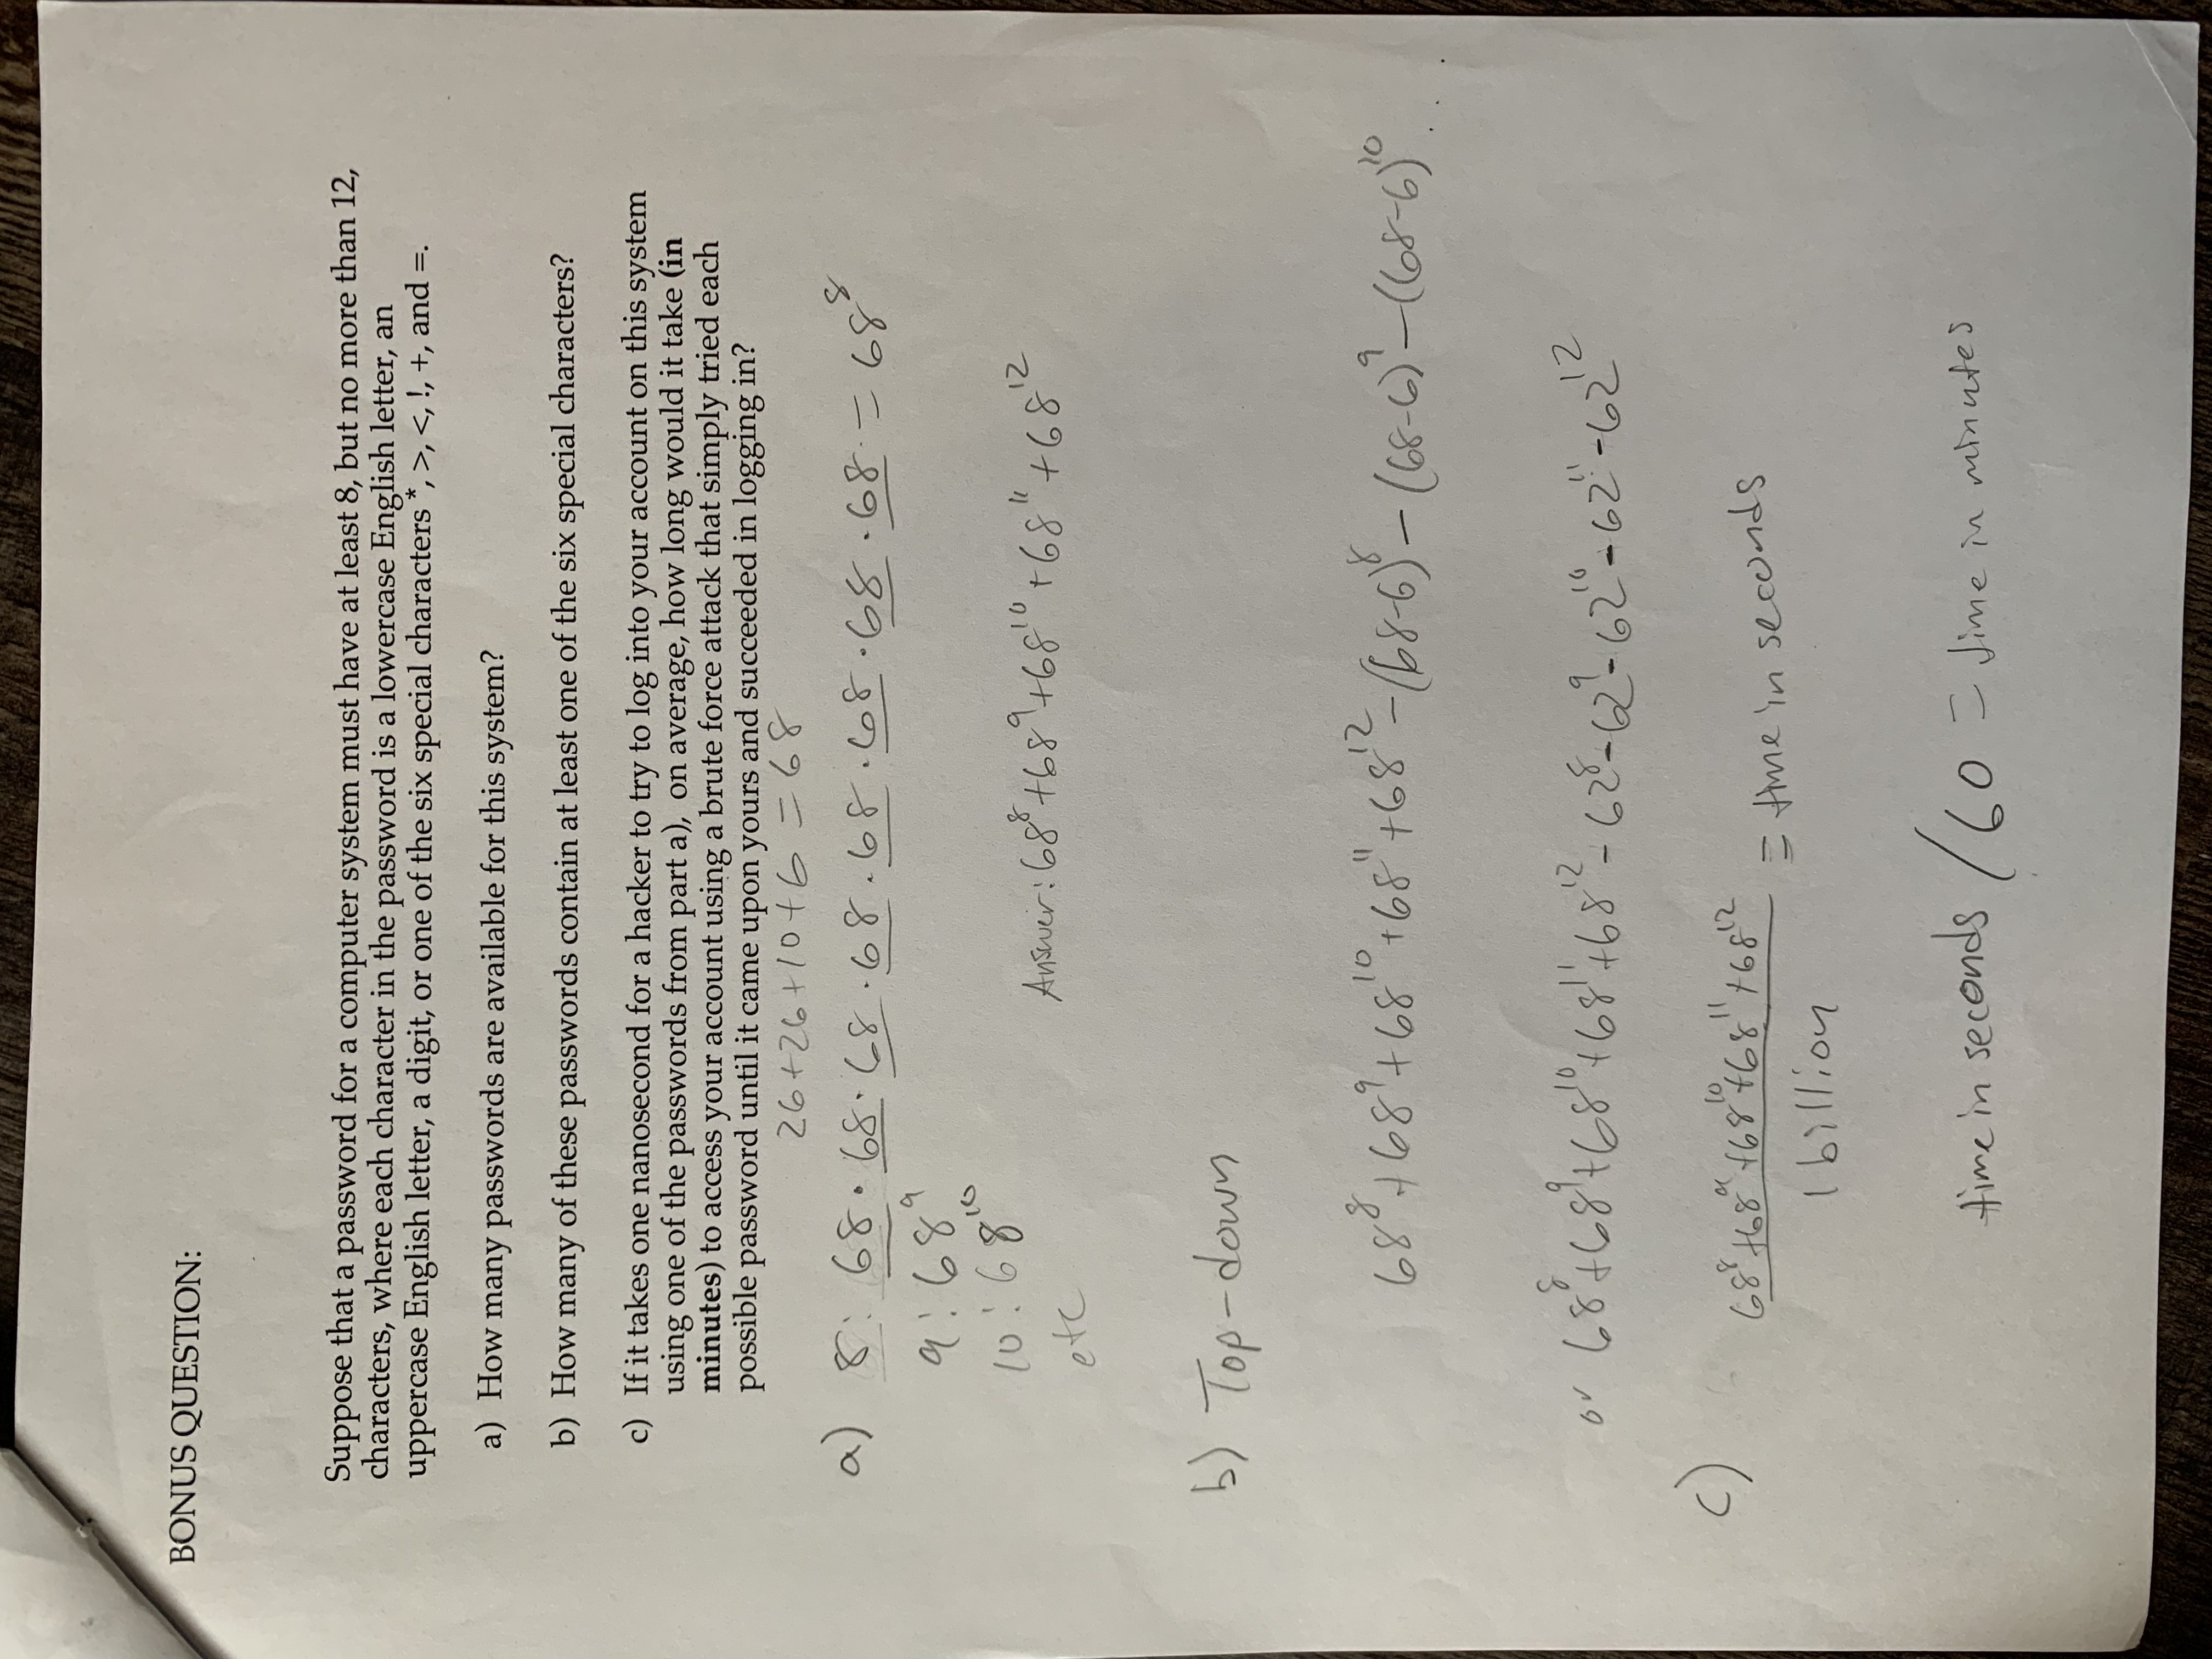 BONUS QUESTION:
Suppose that a password for a computer system must have at least 8, but no more than 12,
characters, where each character in the password is a lowercase English letter, an
uppercase English letter, a digit, or one of the six special characters *, >, <, !, +, and =.
a) How many passwords are available for this system?
b) How many of these passwords contain at least one of the six special characters?
c) If it takes one nanosecond for a hacker to try to log into your account on this system
using one of the passwords from part a), on average, how long would it take (in
minutes) to access your account using a brute force attack that simply tried each
possible password until it came upon yours and succeeded in logging in?
26+26+10+6 = 68
a) 8: 68 · 68 · 68 · 68 · 68 · 68 · 68 · 68 = 68⁸
9: 68⁹
10: 68¹⁰
Answer: 68⁸+68⁹+68¹⁰+68¹¹+68¹²
etc
b) Top-down
68⁸+68⁹+68¹⁰+68¹¹+68¹²-(68-6)⁸-(68-6)⁹-(68-6)¹⁰...
or 68⁸+68⁹+68¹⁰+68¹¹+68¹²-62⁸-62⁹-62¹⁰-62¹¹-62¹²
c)
68⁸+68⁹+68¹⁰+68¹¹+68¹² = time in seconds
1 billion
time in seconds /60 = time in minutes